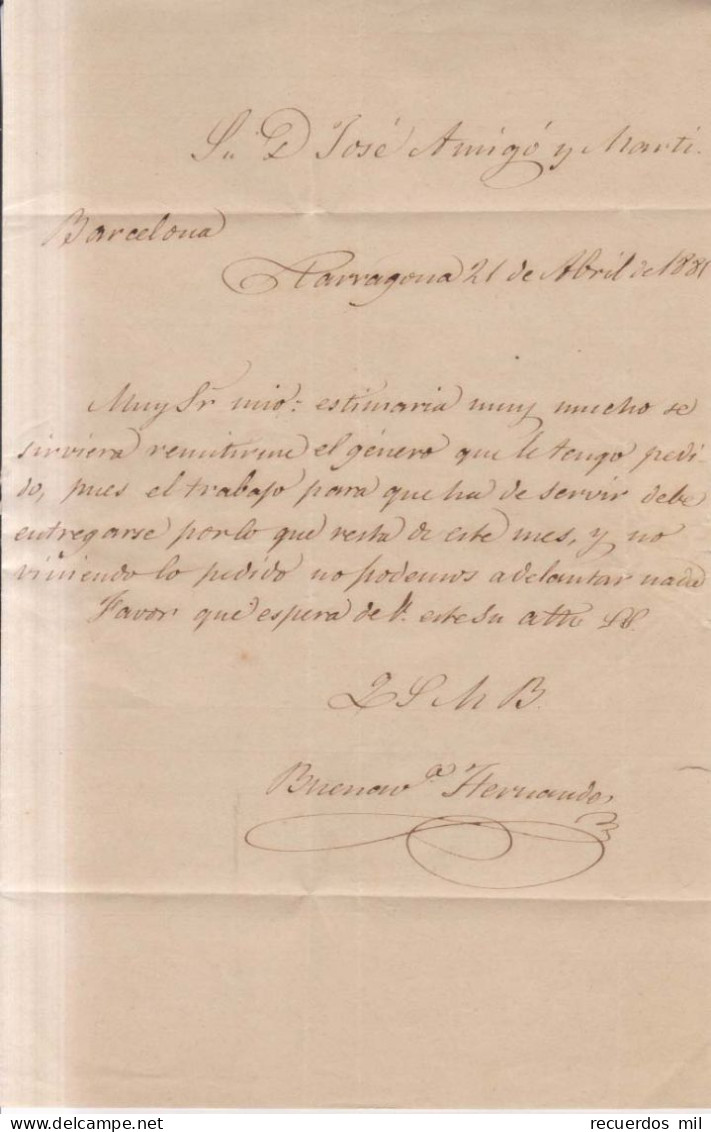 Sr. D José Amigó y Martí.
Barcelona
Tarragona 21 de Abril de 1881
Muy Sr mio: estimaria muy mucho se
sirviera remitirme el género que le tengo pedi-
do, pues el trabajo para que ha de servir debe
entregarse por lo que resta de este mes, y no
viniendo lo pedido no podemos adelantar nada
Favor que espera de V. este su atto SS.
Q S M B.
Buenavª Hernandez
recuerdos mil